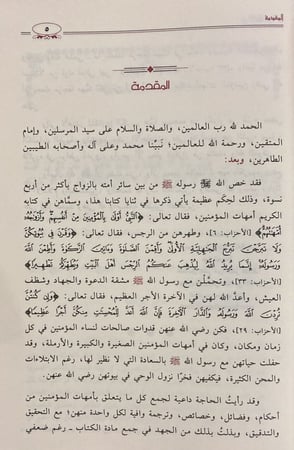 المقدمة
٥
المقدمة
الحمد لله رب العالمين، والصلاة والسلام على سيد المرسلين، وإمام
المتقين، ورحمة الله للعالمين؛ نبيِّنا محمد وعلى آله وأصحابه الطيبين
الطاهرين، وبعد:
فقد خص الله ﷻ رسوله ﷺ من بين سائر أمته بالزواج بأكثر من أربع
نسوة، وذلك لِحكم عظيمة يأتي ذكرها في ثنايا كتابنا هذا، وسمَّاهن في كتابه
الكريم أمهات المؤمنين، فقال تعالى: ﴿النَّبِيُّ أَوْلَى بِالْمُؤْمِنِينَ مِنْ أَنفُسِهِمْ وَأَزْوَاجُهُ
أُمَّهَاتُهُمْ﴾ [الأحزاب: ٦]، وطهرهن من الرجس، فقال تعالى: ﴿وَقَرْنَ فِي بُيُوتِكُنَّ
وَلَا تَبَرَّجْنَ تَبَرُّجَ الْجَاهِلِيَّةِ الْأُولَى وَأَقِمْنَ الصَّلَاةَ وَآتِينَ الزَّكَاةَ وَأَطِعْنَ اللَّهَ
وَرَسُولَهُ إِنَّمَا يُرِيدُ اللَّهُ لِيُذْهِبَ عَنكُمُ الرِّجْسَ أَهْلَ الْبَيْتِ وَيُطَهِّرَكُمْ تَطْهِيرًا﴾
[الأحزاب: ٣٣]، وتحمَّلْن مع رسول الله ﷺ مشقة الدعوة والجهاد وشظف
العيش، وأعدَّ الله لهن في الآخرة الأجر العظيم، فقال تعالى: ﴿وَإِن كُنتُنَّ
تُرِدْنَ اللَّهَ وَرَسُولَهُ وَالدَّارَ الْآخِرَةَ فَإِنَّ اللَّهَ أَعَدَّ لِلْمُحْسِنَاتِ مِنكُنَّ أَجْرًا عَظِيمًا﴾
[الأحزاب: ٢٩]، فكن رضي الله عنهن قدوات صالحات لنساء المؤمنين في كل
زمان ومكان، وكان في أمهات المؤمنين الصغيرة والكبيرة والأرملة، وقد
حفلت حياتهن مع رسول الله ﷺ بالسعادة التي لا نظير لها، رغم الابتلاءات
والمحن الكثيرة، فيكفيهن فخرًا نزول الوحي في بيوتهن رضي الله عنهن.
وقد رأيتُ الحاجة داعية لجمع كل ما يتعلق بأمهات المؤمنين من
أحكام، وفضائل، وخصائص، وترجمة وافية لكل واحدة منهن؛ مع التحقيق
والتدقيق، وبذلتُ بذلك من الجهد في جمع مادة الكتاب ـ رغم ضعفي